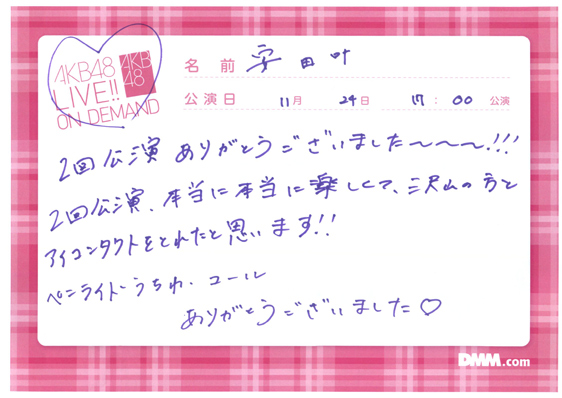 AKB48
LIVE!!
ON DEMAND
AKB
48
名前 安田叶
公演日 11月 24日 17:00 公演
2回公演 ありがとうございました〜〜〜!!!
2回公演、本当に本当に楽しくて、沢山の方と
アイコンタクトをとれたと思います!!
ペンライト・うちわ・コール
ありがとうございました♡
DMM.com